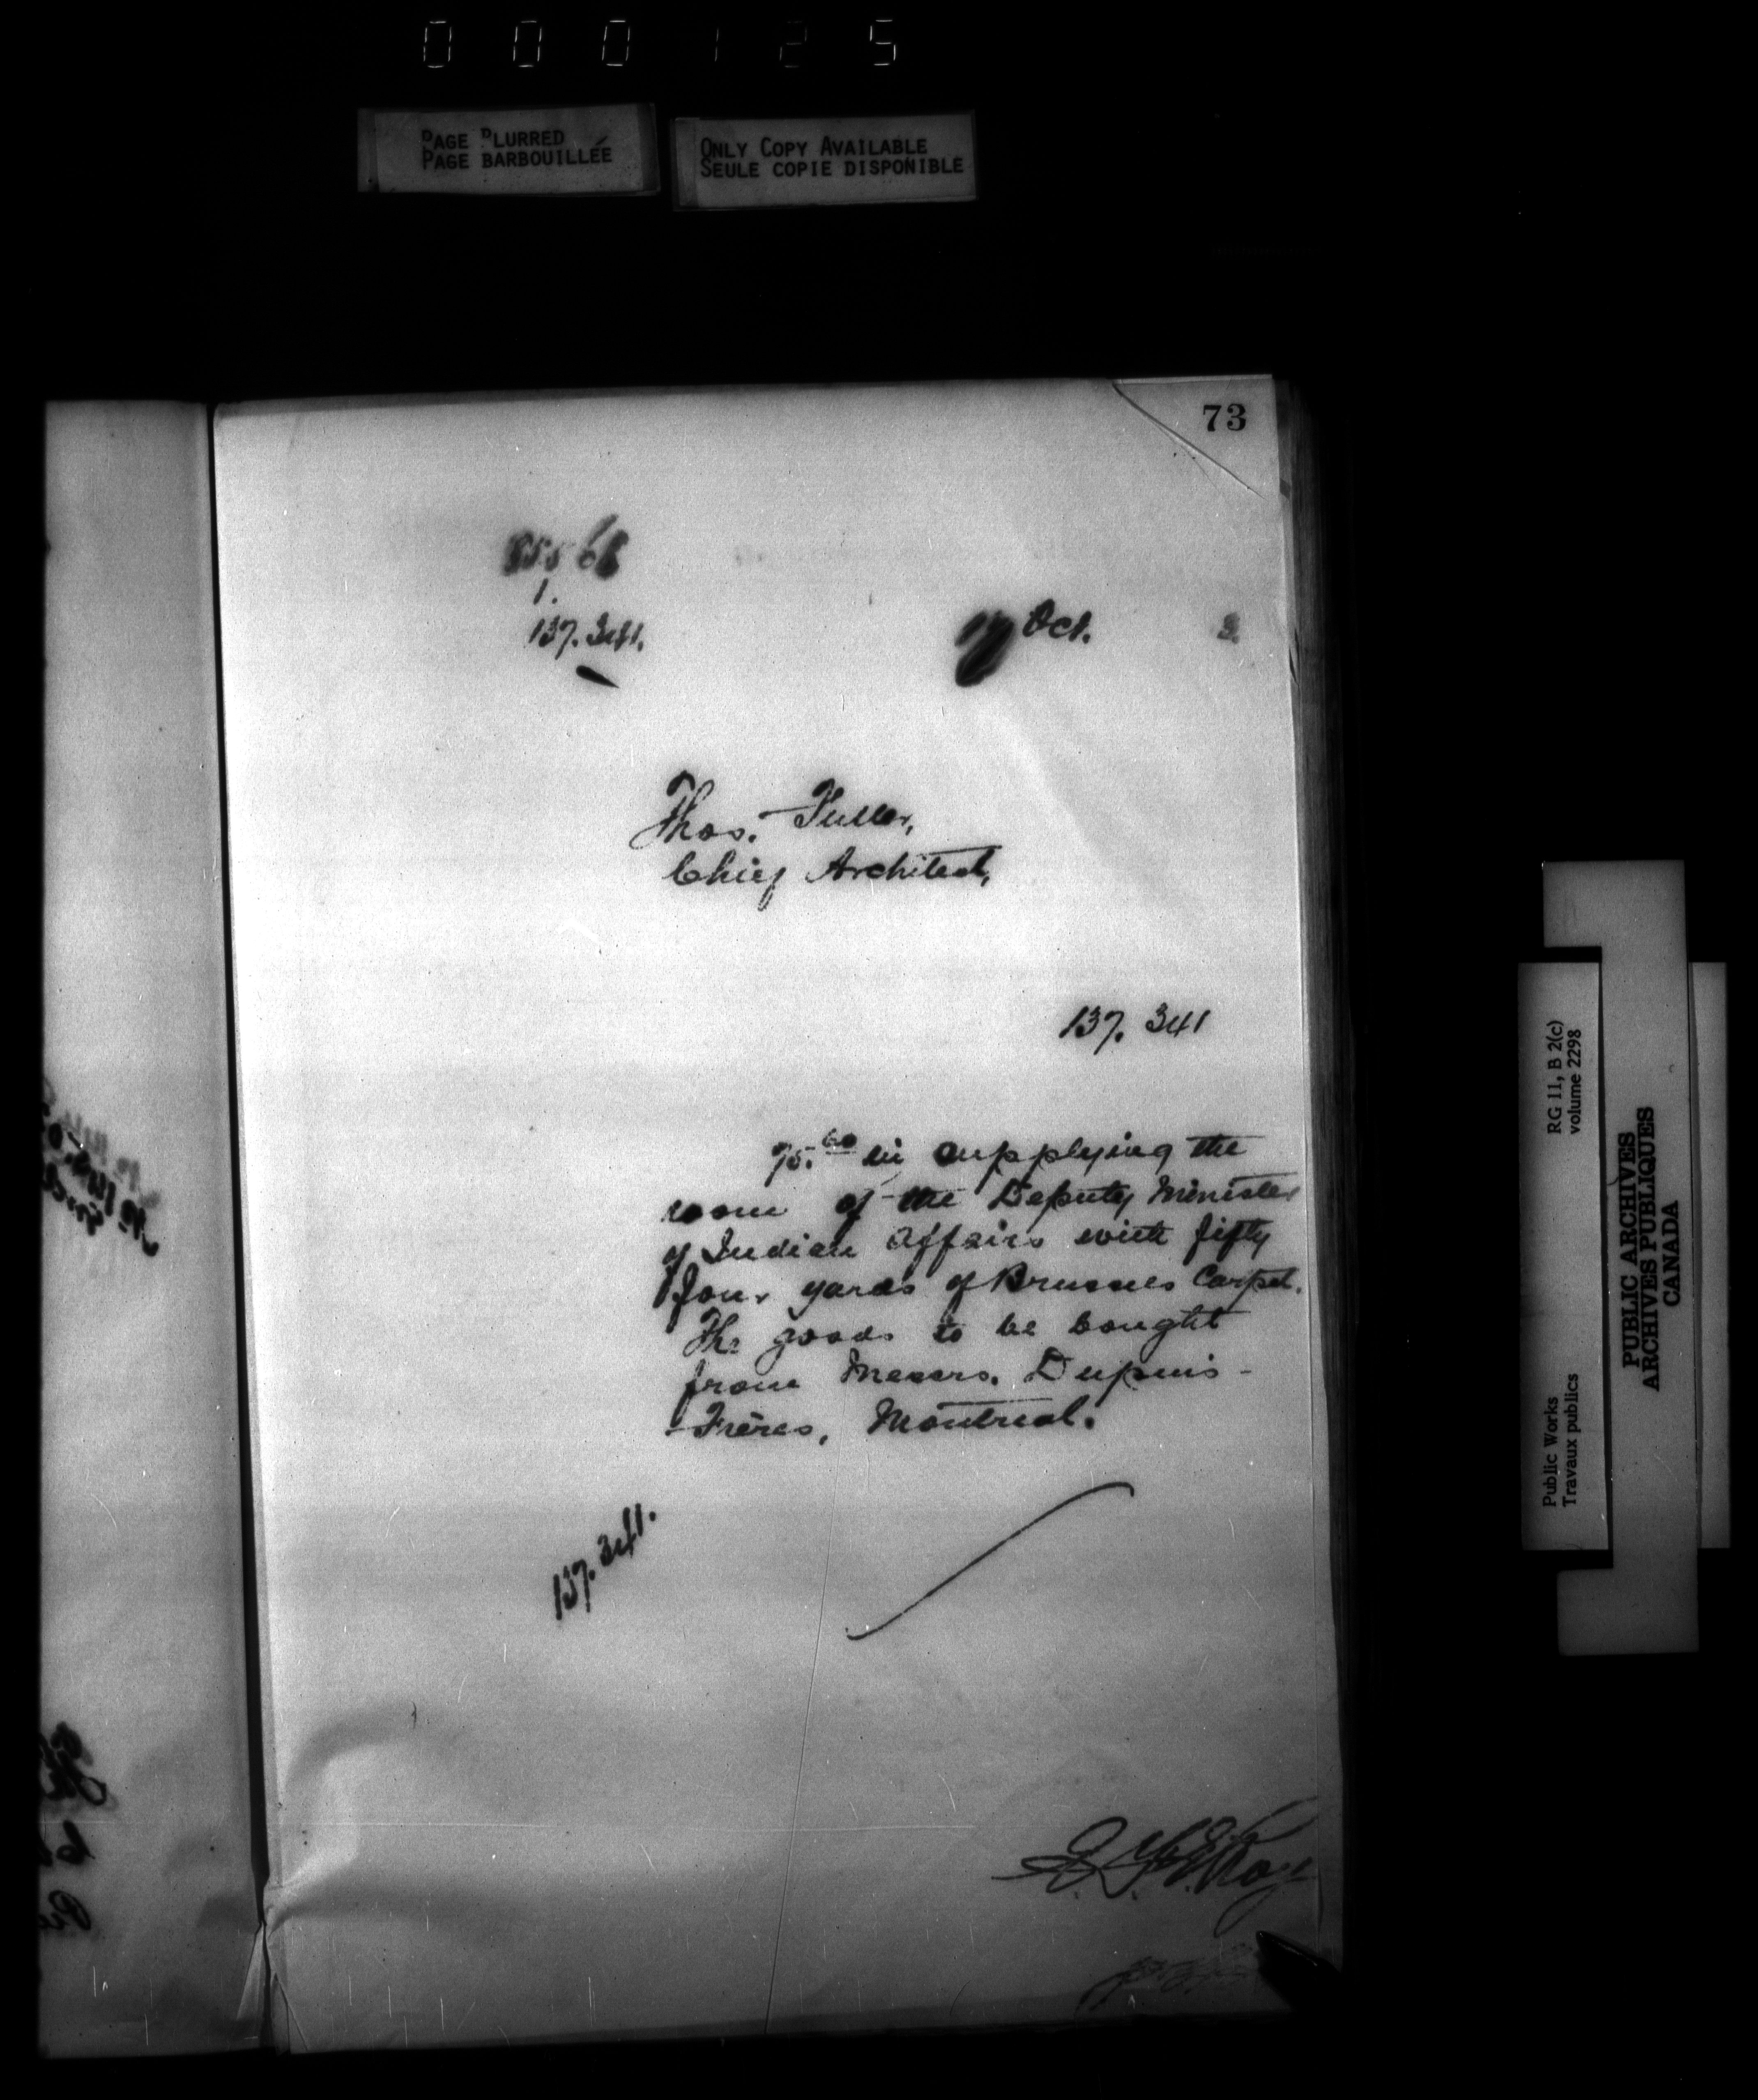 000125
PAGE BLURRED
PAGE BARBOUILLÉE
ONLY COPY AVAILABLE
SEULE COPIE DISPONIBLE
73
1.
137.341.
Oct. 3.
Thos. Fuller,
Chief Architect,
137.341
75.60 in supplying the
room of the Deputy Minister
of Indian Affairs with fifty
four yards of Brussels Carpet.
The goods to be bought
from Messrs. Dupuis-
-Frères, Montreal.
137.341.
Roy
Public Works
Travaux publics
RG 11, B 2(c)
volume 2298
PUBLIC ARCHIVES
ARCHIVES PUBLIQUES
CANADA